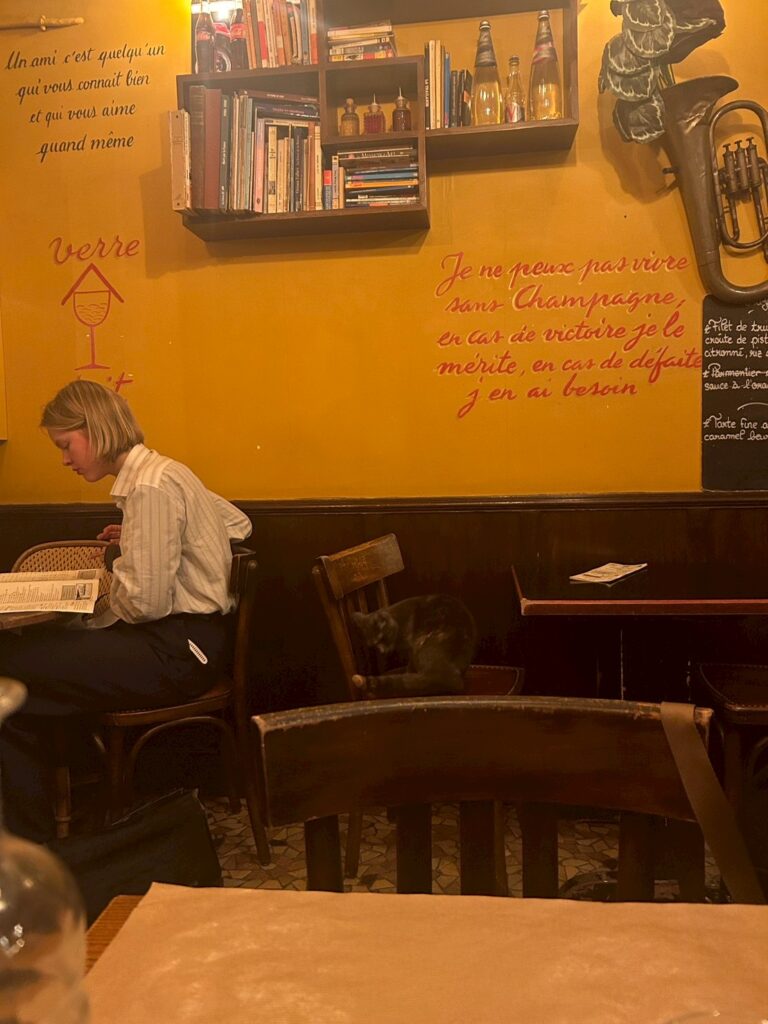 Un ami c'est quelqu'un
qui vous connait bien
et qui vous aime
quand même
verre
Je ne peux pas vivre
sans Champagne,
en cas de victoire je le
mérite, en cas de défaite
j'en ai besoin
Filet de tru
croûte de pist
citronné, riz
Parmentier
sauce à l'oran
Tarte fine a
caramel beur